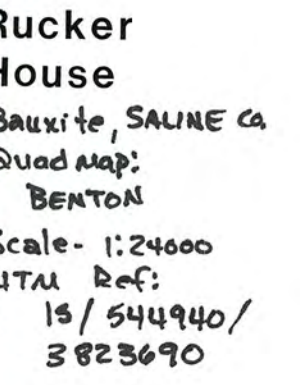 Rucker
House
Bauxite, SALINE Co.
Quad Map:
BENTON
Scale- 1:24000
UTM Ref:
15/ 544940/
3823690